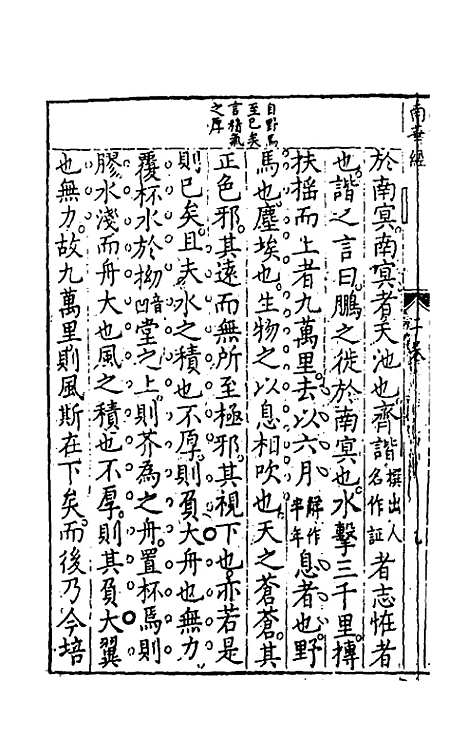 南華經
一卷
自野馬
至已矣
言積氣
之厚
於南冥南冥者天池也齊諧撰出人名作証者志怪者
也諧之言曰鵬之徙於南冥也水擊三千里摶
扶摇而上者九萬里去以六月解作半年息者也野
馬也塵埃也生物之以息相吹也天之蒼蒼其
正色邪其遠而無所至極邪其視下也亦若是
則已矣且夫水之積也不厚則負大舟也無力
覆杯水於拗音凹堂之上則芥為之舟置杯焉則
膠水淺而舟大也風之積也不厚則其負大翼
也無力故九萬里則風斯在下矣而後乃今培